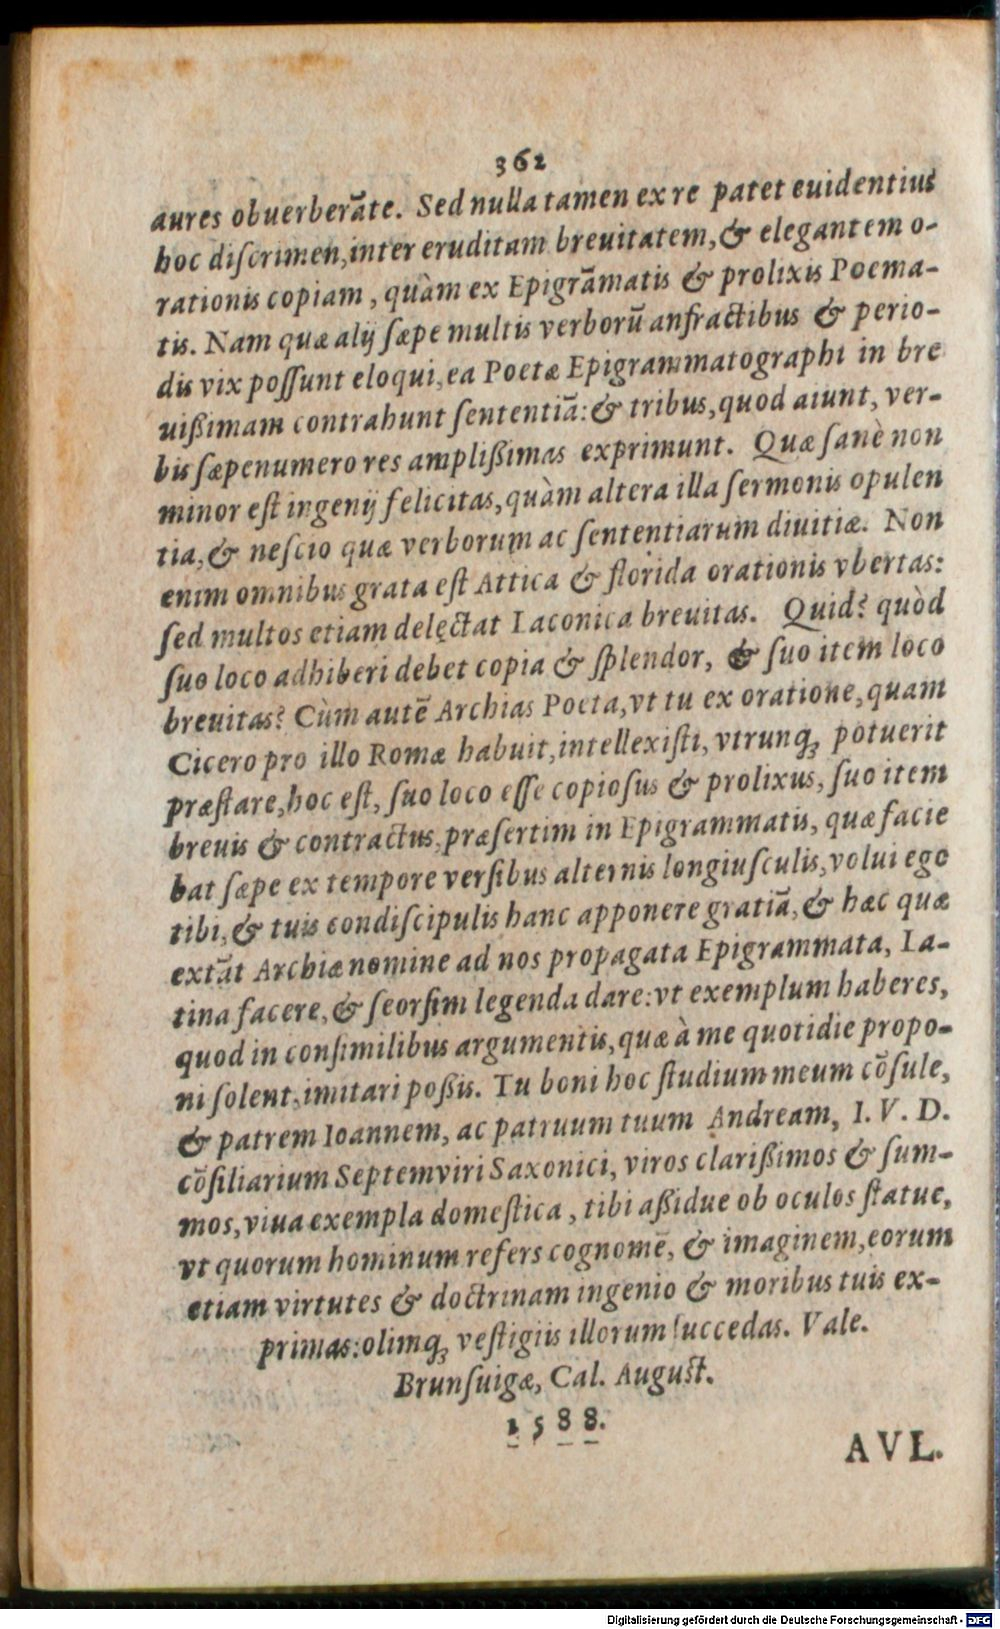 362
aures obuerberāte. Sed nulla tamen ex re patet euidentius
hoc diſcrimen, inter eruditam breuitatem, & elegantem o-
rationis copiam, quàm ex Epigrāmatis & prolixis Poema-
tis. Nam quæ alij ſæpe multis verborū anfractibus & perio-
dis vix poſſunt eloqui, ea Poetæ Epigrammatographi in bre
uißimam contrahunt ſententiā: & tribus, quod aiunt, ver-
bis ſæpenumero res amplißimas exprimunt. Quæ ſanè non
minor eſt ingenij felicitas, quàm altera illa ſermonis opulen
tia, & neſcio quæ verborum ac ſententiarum diuitiæ. Non
enim omnibus grata eſt Attica & florida orationis vbertas:
ſed multos etiam delectat Laconica breuitas. Quid? quòd
ſuo loco adhiberi debet copia & ſplendor, & ſuo item loco
breuitas? Cùm autē Archias Poeta, vt tu ex oratione, quam
Cicero pro illo Romæ habuit, intellexiſti, vtrunq; potuerit
præſtare, hoc eſt, ſuo loco eſſe copioſus & prolixus, ſuo item
breuis & contractus, præſertim in Epigrammatis, quæ facie
bat ſæpe ex tempore verſibus alternis longiuſculis, volui ego
tibi, & tuis condiſcipulis hanc apponere gratiā, & hæc quæ
extāt Archiæ nomine ad nos propagata Epigrammata, La-
tina facere, & ſeorſim legenda dare: vt exemplum haberes,
quod in conſimilibus argumentis, quæ à me quotidie propo-
ni ſolent, imitari poßis. Tu boni hoc ſtudium meum cōſule,
& patrem Ioannem, ac patruum tuum Andream, I. V. D.
cōſiliarium Septemviri Saxonici, viros clarißimos & ſum-
mos, viua exempla domeſtica, tibi aßidue ob oculos ſtatue,
vt quorum hominum refers cognomē, & imaginem, eorum
etiam virtutes & doctrinam ingenio & moribus tuis ex-
primas: olimq; veſtigiis illorum ſuccedas. Vale.
Brunſuigæ, Cal. Auguſt.
1588.
AVL.
Digitalisierung gefördert durch die Deutsche Forschungsgemeinschaft - DFG